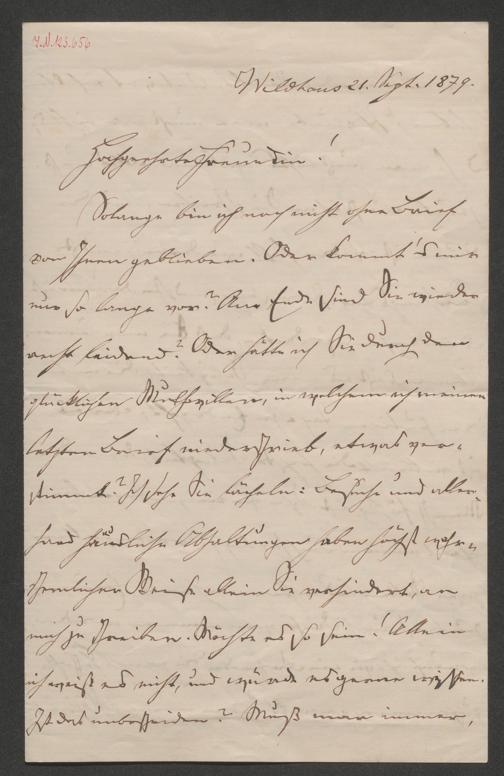 J.N. 123.656
Wildhaus 21. Sept. 1879.
Hochgeehrte Freundin!
Solange bin ich noch nicht ohne Brief
von Ihnen geblieben. Oder kommt's mir
nur so lange vor? Am Ende sind Sie wieder
recht leidend? Oder hätte ich Sie durch den
glücklichen Muthwillen, in welchem ich meinen
letzten Brief niederschrieb, etwas ver-
stimmt? Ich sehe Sie lächeln: Besuche und aller-
hand häusliche Abhaltungen haben höchst wahr-
scheinlicher Weise allein Sie verhindert, an
mich zu schreiben. Möchte es so sein! Allein
ich weiß es nicht, und würde es gerne wissen.
Ist das unbescheiden? Muß man immer,